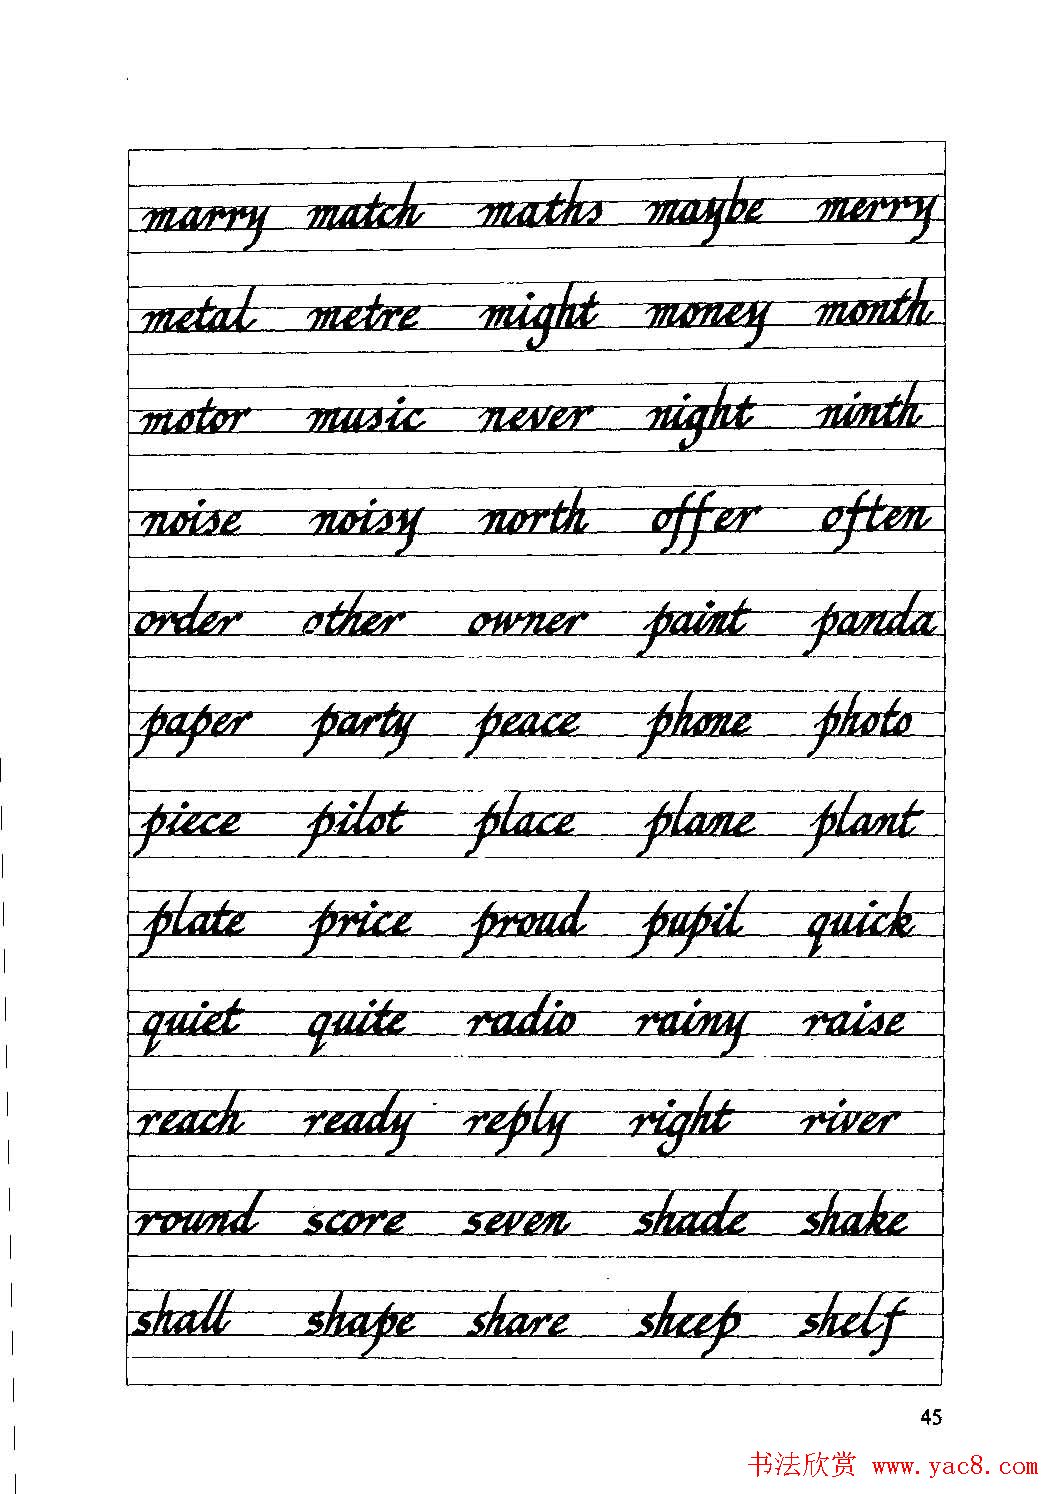 marry match maths maybe merry
metal metre might money month
motor music never night ninth
noise noisy north offer often
order other owner paint panda
paper party peace phone photo
piece pilot place plane plant
plate price proud pupil quick
quiet quite radio rainy raise
reach ready reply right river
round score seven shade shake
shall shape share sheep shelf
45
书法欣赏 www.yac8.com